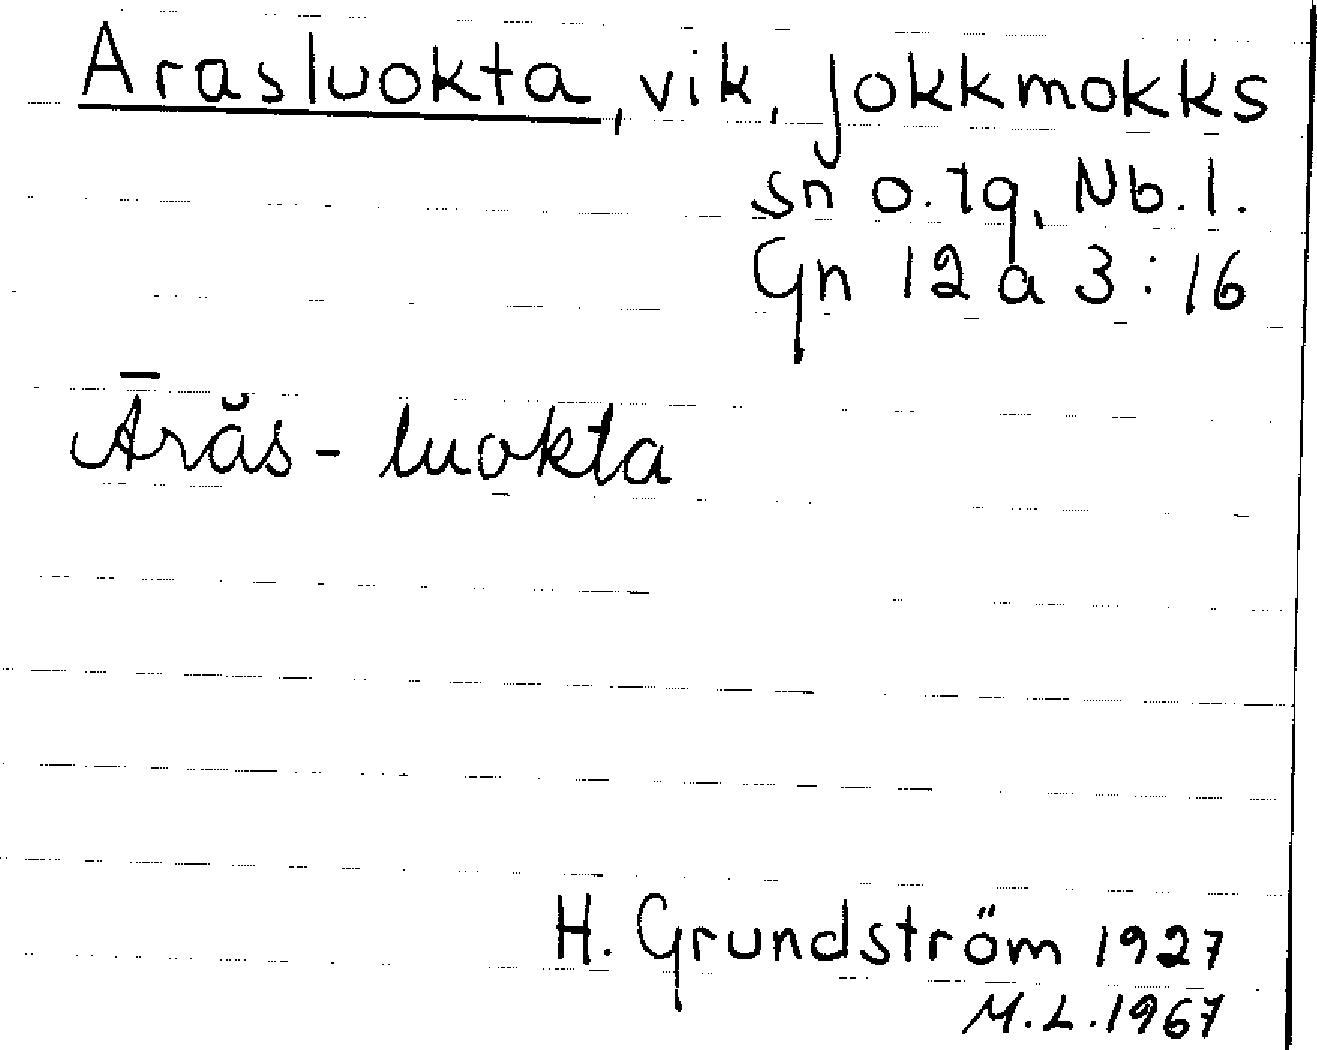 Arasluokta, vik, Jokkmokks
sn o. tg, Nb. l.
Gn 12 a 3:16
Ārăs-luokta
H. Grundström 1927
M.L. 1967